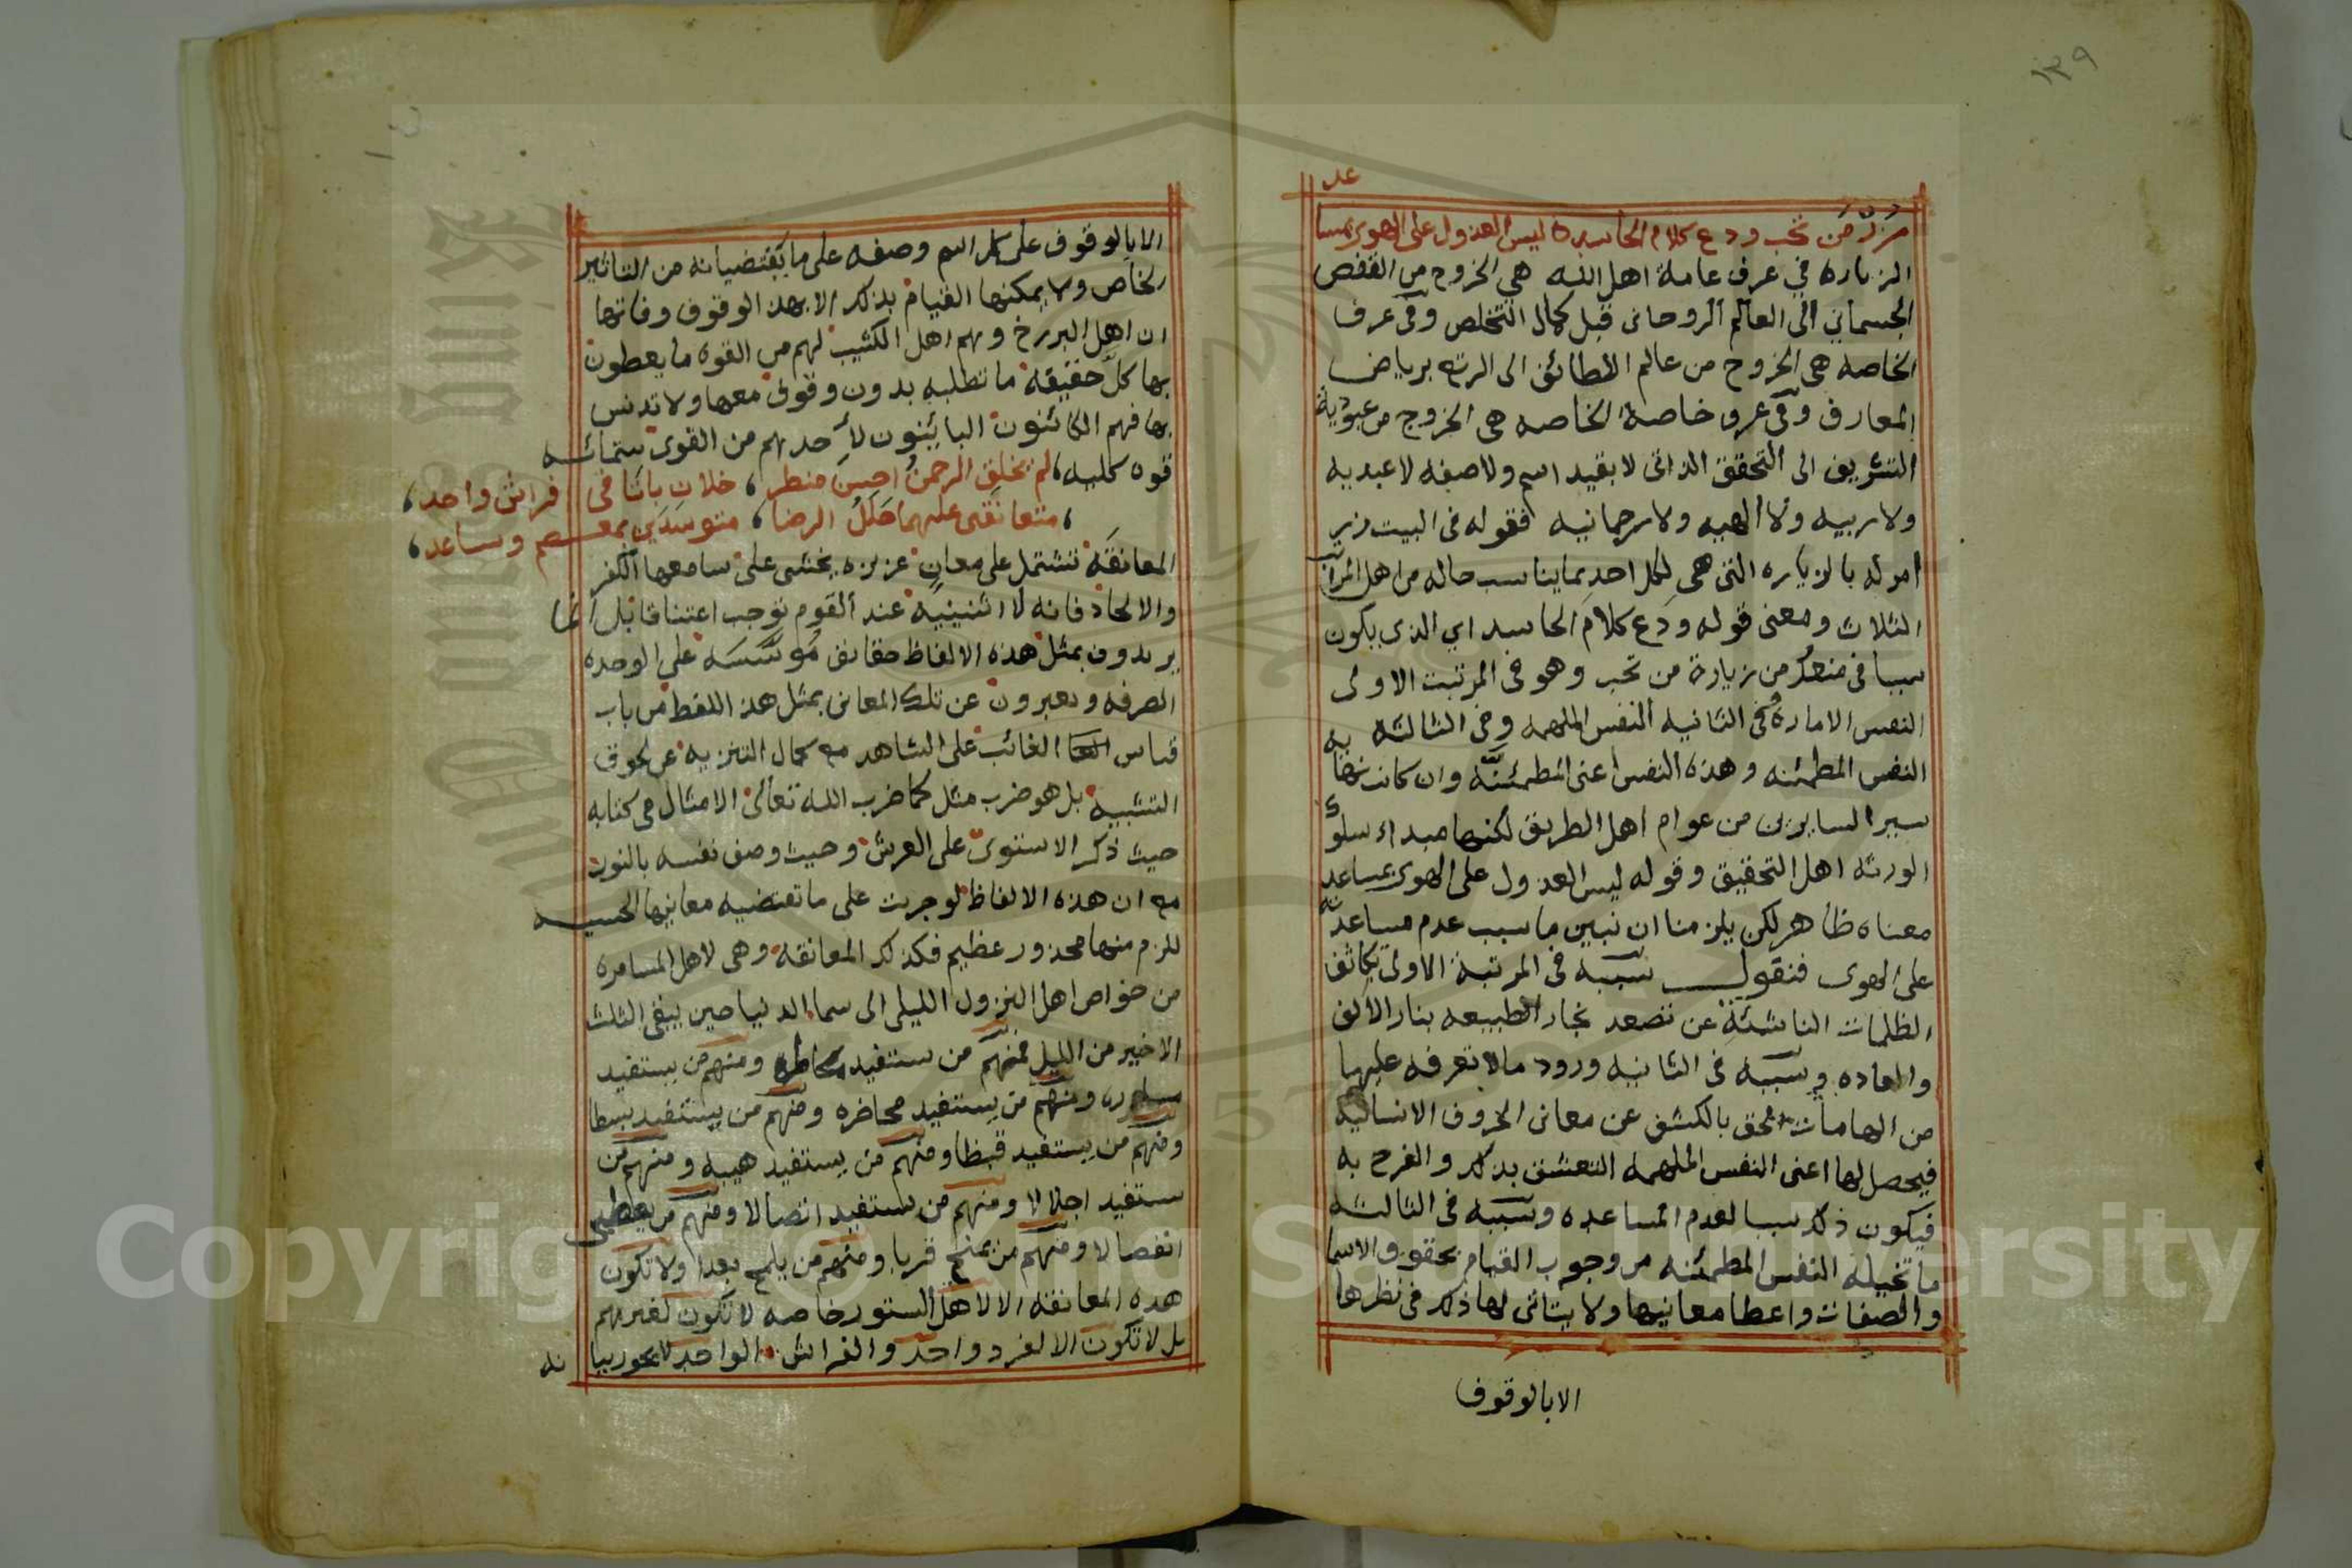 ١٣٩
زر من تحب ودع كلام الحاسد ليس العذول على الهوى بمسا
عد
الزياره في عرف عامة اهل الله هي الخروج من القفص
الجسماني الى العالم الروحاني قبل كمال التخلص وفي عرف
الخاصه هي الخروج من عالم اللطائف الى الرتع برياض
المعارف وفي عرف خاصة الخاصه هي الخروج من عبودية
التشريف الى التحقق الذاتي لا بقيد اسم ولا صفه لا عبديه
ولا ربيه ولا الهيه ولا رحمانيه فقوله في البيت زر
امر له بالزياره التي هي لكل احد بما يناسب حاله من اهل المراتب
الثلاث ومعنى قوله ودع كلام الحاسد اي الذي يكون
سببا في منعك من زيارة من تحب وهو في المرتبت الاولى
النفس الاماره وفي الثانيه النفس الملهمه وفي الثالثه
النفس المطمئنه وهذه النفس اعني المطمئنه وان كانت نهاية
سير السايرين من عوام اهل الطريق لكنها مبداء سلوك
الورثه اهل التحقيق وقوله ليس العذول على الهوى بمساعد
معناه ظاهر لكن يلزمنا ان نبين ما سبب عدم مساعدته
على الهوى فنقول سببه في المرتبة الاولى تكاثف
الظلمات الناشئة عن تصعد بخار الطبيعه بنار الالف
والعاده وسببه في الثانيه ورود مالا تعرفه عليها
من الهامات الحق بالكشف عن معاني الحروف الانسانيه
فيحصل لها اعني النفس الملهمه التعشق بذلك والفرح به
فيكون ذلك سببا لعدم المساعده وسببه في الثالثه
ما تخيله النفس المطمئنه من وجوب القيام بحقوق الاسما
والصفات واعطا معانيها ولا يتاتى لها ذلك في نظرها
الا بالوقوف
الا بالوقوف على كل اسم وصفه على ما يقتضيانه من التاثير
الخاص ولا يمكنها القيام بذلك الا بهذا الوقوف وفاتها
ان اهل البرزخ وهم اهل الكثيب لهم من القوه ما يعطون
بها كل حقيقة ما تطلبه بدون وقوف معها ولا تدنس
بها فهم الكائنون البائنون لاحدهم من القوى ستمائه
قوه كليه، لم يخلق الرحمن احسن منظر، خلان باتا في فراش واحد،
، متعانقين عليهما حلل الرضا، متوسدين بمعصم وساعد،
المعانقه تشتمل على معان عزيزه يخشى على سامعها الكفر
والالحاد فانه لا اثنينيه عند القوم توجب اعتناقا بل انما
يريدون بمثل هذه الالفاظ حقائق مؤسسه على الوحده
الصرفه ويعبرون عن تلك المعاني بمثل هذا اللفظ من باب
قياس الغائب على الشاهد مع كمال التنزيه عن لحوق
التشبيه بل هو ضرب مثل كما ضرب الله تعالى الامثال في كتابه
حيث ذكر الاستوى على العرش وحيث وصف نفسه بالنور
مع ان هذه الالفاظ لو جرت على ما تقتضيه معانيها الحسيه
للزم منها محذور عظيم فكذلك المعانقة وهي لاهل المسامره
من خواص اهل النزول الليلي الى سما الدنيا حين يبقى الثلث
الاخير من الليل فمنهم من يستفيد ومنهم من يستفيد
ومنهم من يستفيد محاضره ومنهم من يستفيد بسطا
ومنهم من يستفيد قبظا ومنهم من يستفيد هيبه ومنهم من
يستفيد اجلالا ومنهم من يستفيد اتصالا ومنهم من يعطى
انفصالا ومنهم من يمنح قربا ومنهم من يلمح بعدا ولا تكون
هذه المعانقه الا لاهل الستور خاصه لا تكون لغيرهم
بل لا تكون الا لفرد واحد والفراش الواحد
نه
Copyright © King Saud University